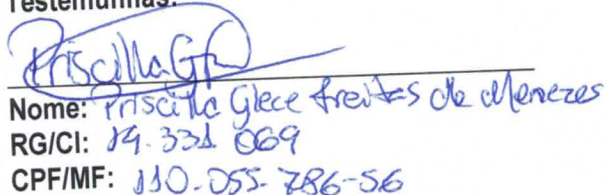 Testemunhas:
Priscilla GF
Nome: Priscilla Glece freitas de Menezes
RG/CI: 14.331 069
CPF/MF: 110.055.786-56